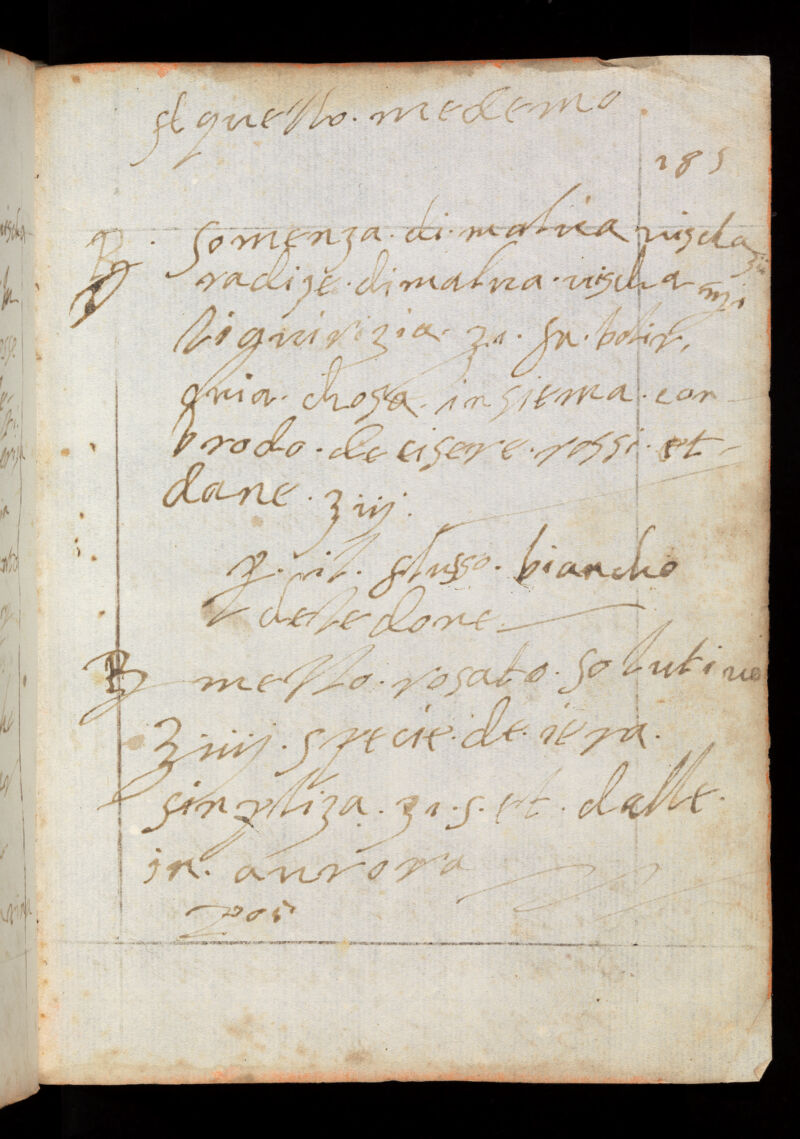 al quello. medemo
185
℞. somenza. di. malva vischa ʒiii
radize. di malva. vischa
liquirizia. ʒ1. fa. bolir.
onia. chosa. insiema. con
brodo. de cisere. rossi. et
dane. ʒiij.
p. il. flusso. biancho
de le done
℞ mello. rosato. solutivo
ʒiiij. specie. de. iera.
sinpliza. ʒ1. s. et. dalle.
in. aurora